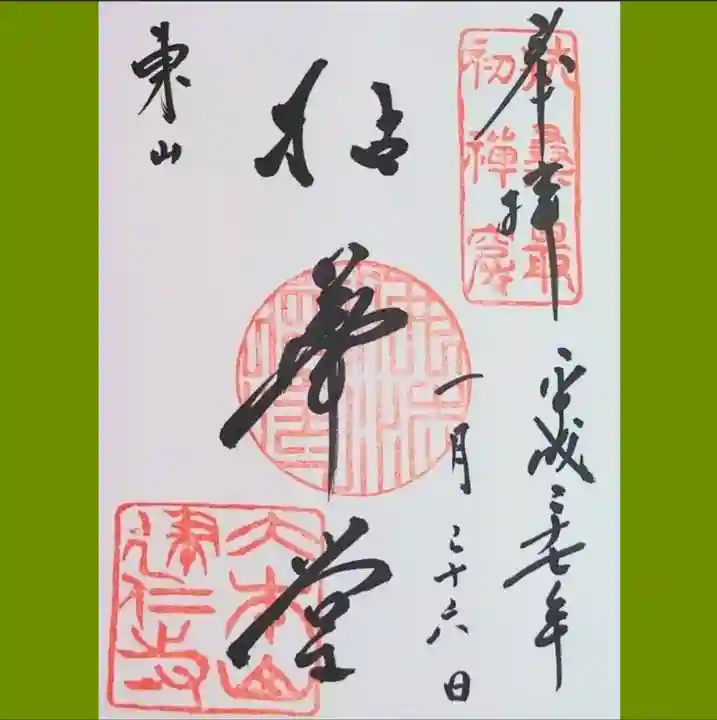 奉拝
平成二十七年
一月二十六日
扶桑最
初禅窟
拈華堂
東山
大本山
建仁寺